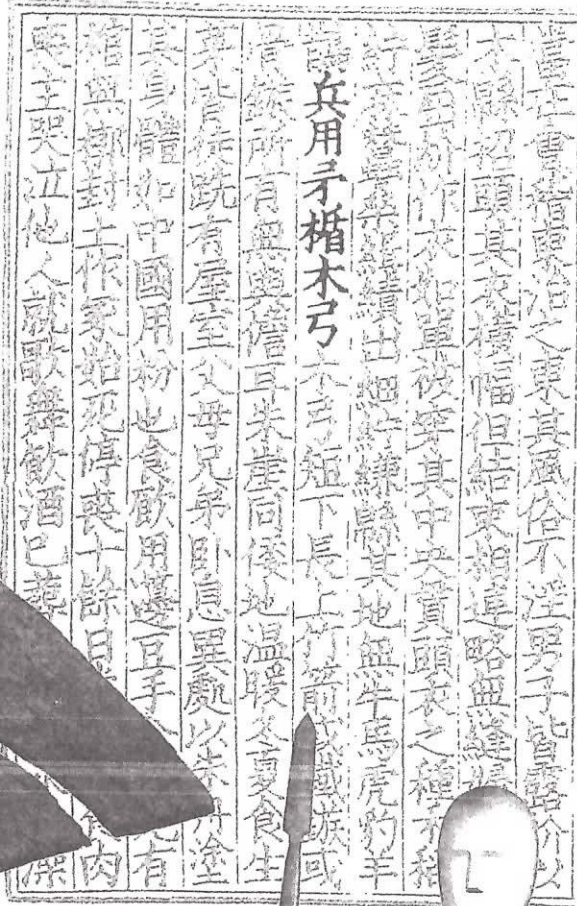 當在會稽東治之東其風俗不淫男子皆露紒以
木緜招頭其衣橫幅但結束相連略無縫
髮屈紒作衣如單被穿其中央貫頭衣之種禾稻
紵麻蠶桑緝績出細紵縑緜其地無牛馬虎豹羊
鵲兵用矛楯木弓木弓短下長上竹箭或鐵鏃或
骨鏃所有無與儋耳朱崖同倭地溫暖冬夏食生
菜皆徒跣有屋室父母兄弟卧息異處以朱丹塗
其身體如中國用粉也食飲用籩豆手有
棺無槨封土作冢始死停喪十餘日肉
喪主哭泣他人就歌舞飲酒已葬澡